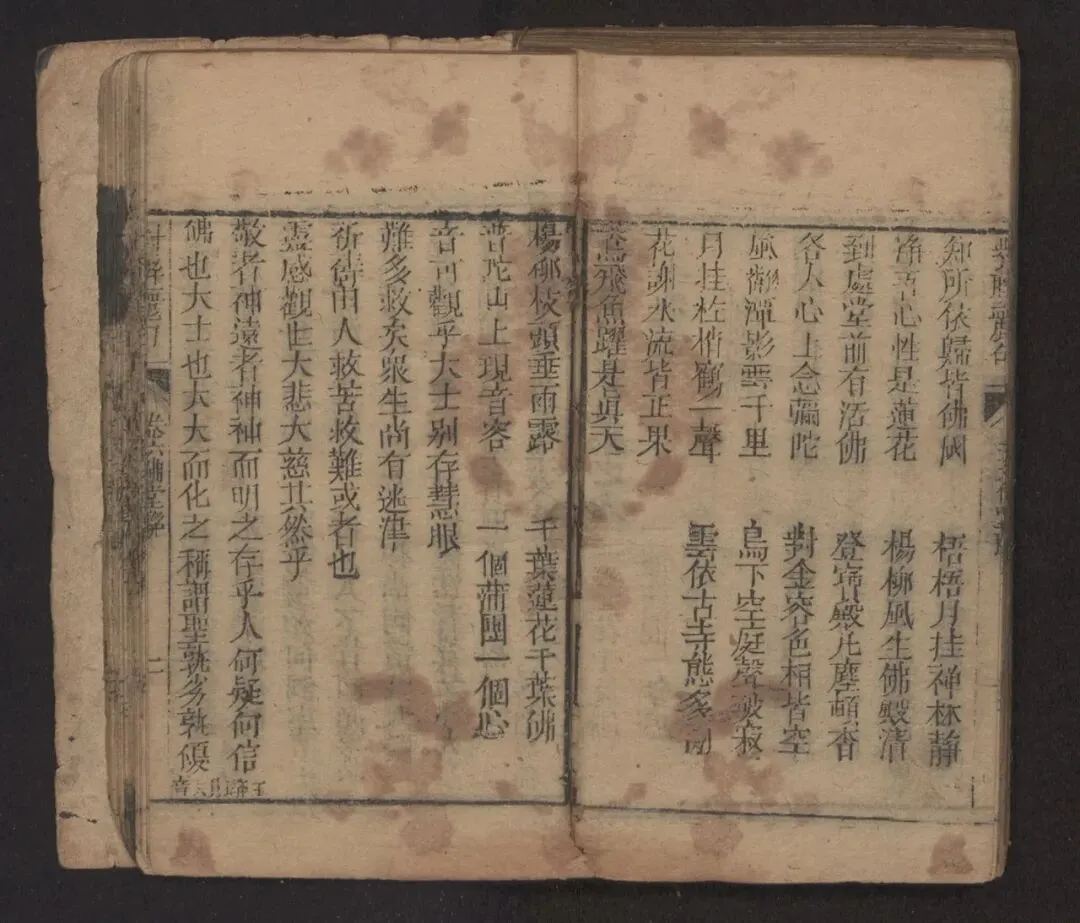 知所依歸皆佛國　梧梧月挂禅林靜
淨吾心性是蓮花　楊柳風生佛殿清
到處堂前有活佛　登寶殿凡塵頓杳
各人心上念彌陀　對金容色相皆空
風潭影雲千里　鳥下空庭聲破寂
月挂松梢鶴一聲　雲依古寺態多
花謝水流皆正果
鳶飛魚躍是眞天
楊柳枝頭垂雨露　千葉蓮花千葉佛
普陀山上現音容　一個蒲團一個心
音可觀乎大士别存慧眼
難多救矣衆生尚有迷津
祈禱由人救苦救難或者也
靈感觀世大悲大慈其然乎
敬者神遠者神神而明之存乎人何疑何信
佛也大士也大大而化之稱謂聖孰劣孰優
卷六佛堂聯　二